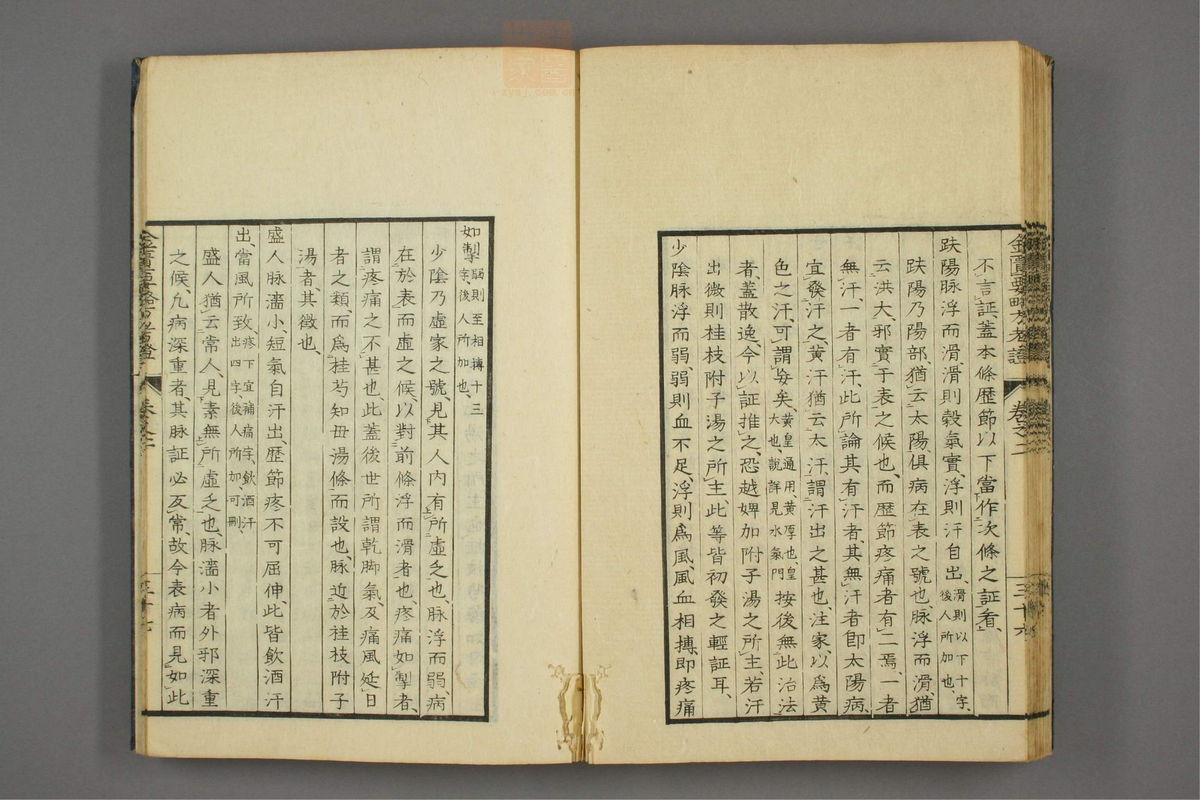 不言証、蓋本條歴節以下當作次條之証看、
趺陽脉浮而滑滑則穀氣實、浮則汗自出、滑則以下十字、後人所加也、
趺陽乃陽部、猶云太陽、俱病在表之號也、脉浮而滑、猶
云洪大、邪實于表之候也、而歴節疼痛者有二焉、一者
無汗、一者有汗、此所論其有汗者、其無汗者即太陽病、
宜發汗之、黄汗猶云大汗、謂汗出之甚也、注家以爲黄
色之汗、可謂妄矣、黄皇通用、黄厚也、皇大也、説詳見水氣門按後無此治法
者、蓋散逸、今以証推之、恐越婢加附子湯之所主、若汗
出微則桂枝附子湯之所主、此等皆初發之輕証耳、
少陰脉浮而弱、弱則血不足、浮則爲風、風血相搏即疼痛
如掣弱則至相搏十三字、後人所加也、
少陰乃虛家之號、見其人內有所虛乏也、脉浮而弱、病
在於表而虛之候、以對前條浮而滑者也疼痛如掣者、
謂疼痛之不甚也、此蓋後世所謂乾脚氣、及痛風延日
者之類、而爲桂芍知母湯條而設也、脉近於桂枝附子
湯者、其徴也、
盛人脉濇小、短氣自汗出、歴節疼不可屈伸、此皆飲酒汗
出、當風所致、疼下宜補痛字、飲酒汗出四字、後人所加、可刪、
盛人猶云常人、見素無所虛乏也、脉濇小者外邪深重
之候、凡病深重者、其脉証必反常、故今表病而見如此